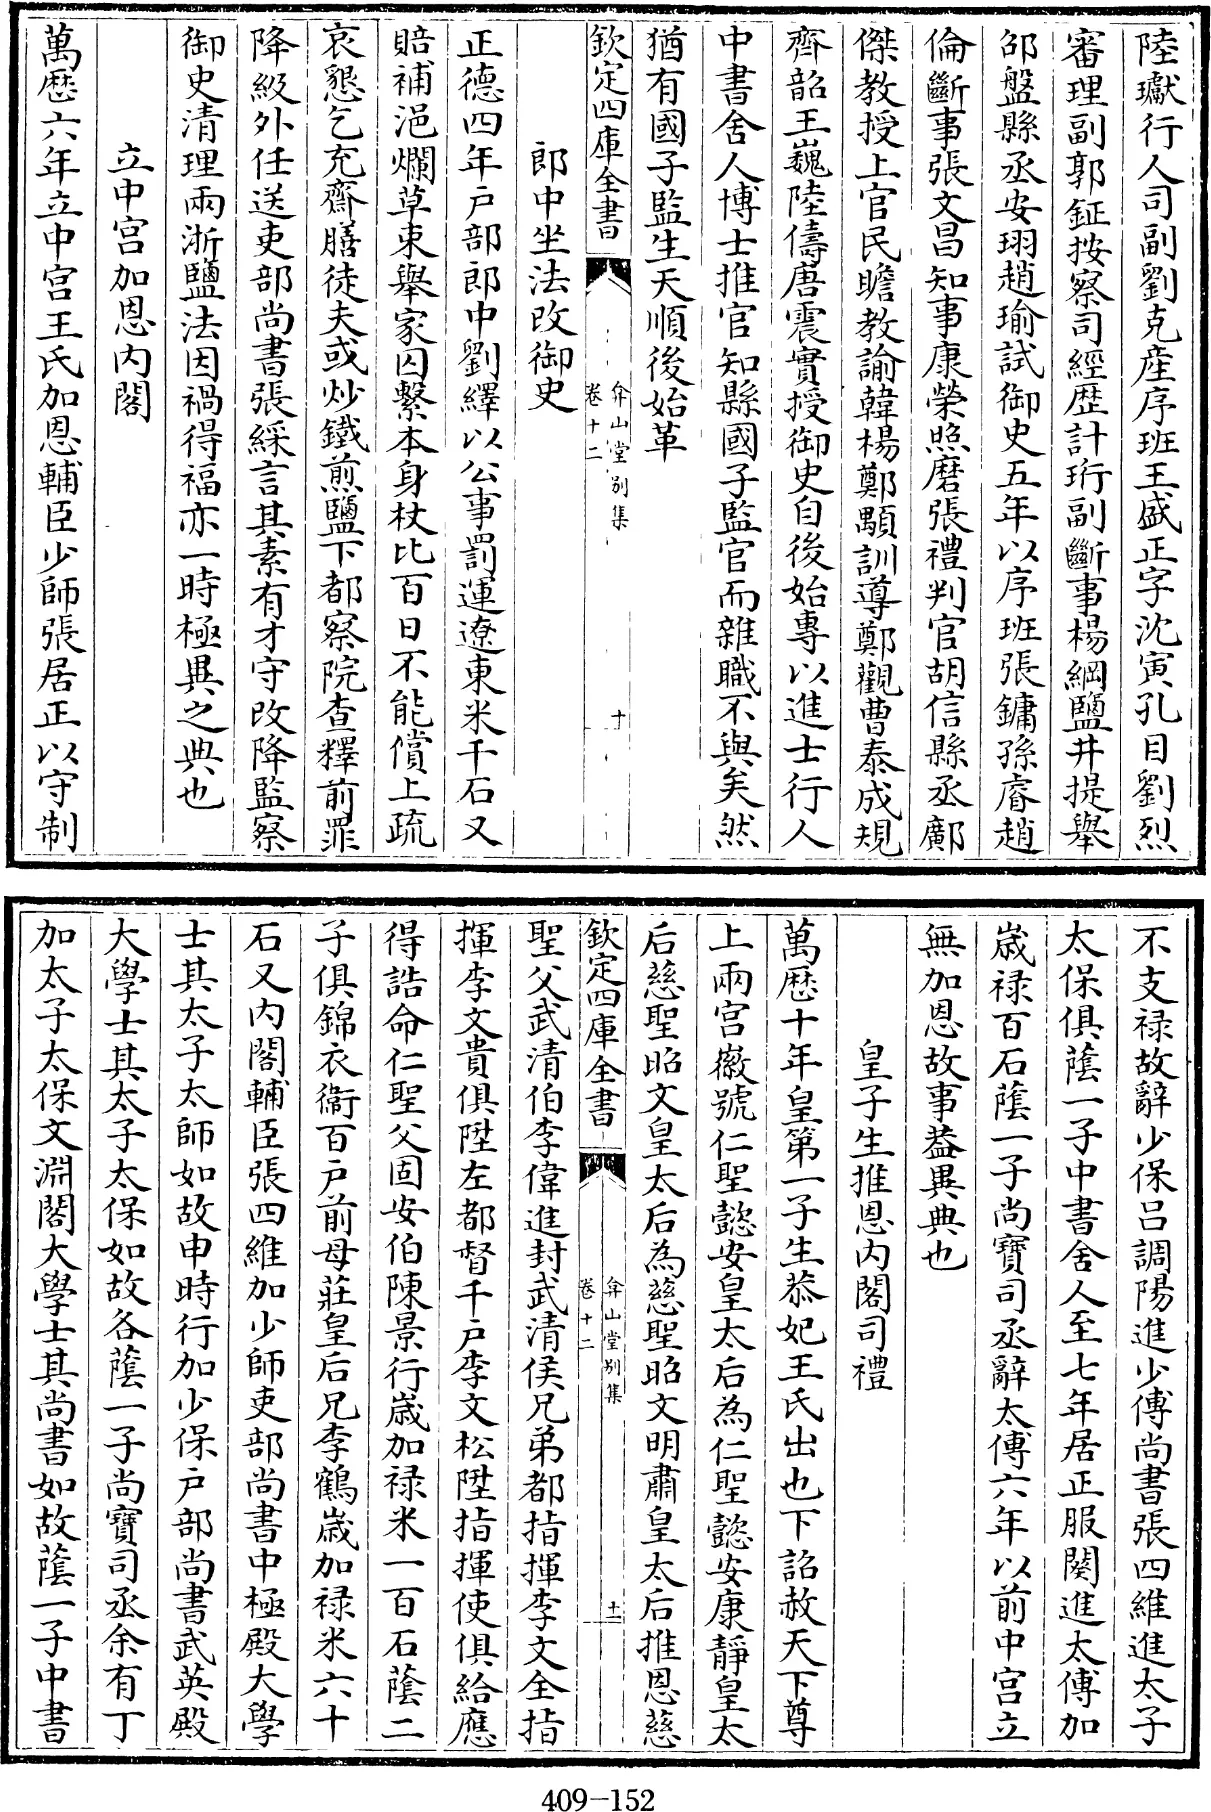 陸瓛行人司副劉克産序班王盛正字沈寅孔目劉烈
審理副郭鉦按察司經歴計珩副斷事楊綱鹽井提舉
邵盤縣丞安珝趙瑜試御史五年以序班張鏞孫睿趙
倫斷事張文昌知事康榮照磨張禮判官胡信縣丞鄺
傑教授上官民瞻教諭韓楊鄭顒訓導鄭觀曹泰成規
齊韶王巍陸儔唐震實授御史自後始專以進士行人
中書舍人博士推官知縣國子監官而雜職不與矣然
猶有國子監生天順後始革
欽定四庫全書
弇山堂別集
卷十二
十
郎中坐法改御史
正德四年户部郎中劉繹以公事罰運遼東米千石又
賠補浥爛草束舉家囚繫本身杖比百日不能償上疏
哀懇乞充齋膳徒夫或炒鐵煎鹽下都察院查釋前罪
降級外任送吏部尚書張綵言其素有才守改降監察
御史清理兩浙鹽法因禍得福亦一時極異之典也
立中宫加恩内閣
萬歴六年立中宫王氏加恩輔臣少師張居正以守制
不支禄故辭少保吕調陽進少傅尚書張四維進太子
太保俱䕃一子中書舍人至七年居正服闋進太傅加
嵗禄百石䕃一子尚寶司丞辭太傅六年以前中宫立
無加恩故事葢異典也
皇子生推恩内閣司禮
萬歴十年皇第一子生恭妃王氏出也下詔赦天下尊
上兩宫徽號仁聖懿安皇太后為仁聖懿安康靜皇太
后慈聖昭文皇太后為慈聖昭文明肅皇太后推恩慈
欽定四庫全書
弇山堂別集
卷十二
十一
聖父武清伯李偉進封武清侯兄弟都指揮李文全指
揮李文貴俱陞左都督千户李文松陞指揮使俱給應
得誥命仁聖父固安伯陳景行嵗加禄米一百石䕃二
子俱錦衣衞百户前母莊皇后兄李鶴嵗加禄米六十
石又内閣輔臣張四維加少師吏部尚書中極殿大學
士其太子太師如故申時行加少保户部尚書武英殿
大學士其太子太保如故各䕃一子尚寶司丞余有丁
加太子太保文淵閣大學士其尚書如故䕃一子中書
409-152